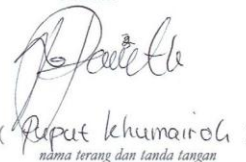 ( Puput khumairoh
nama terang dan tanda tangan